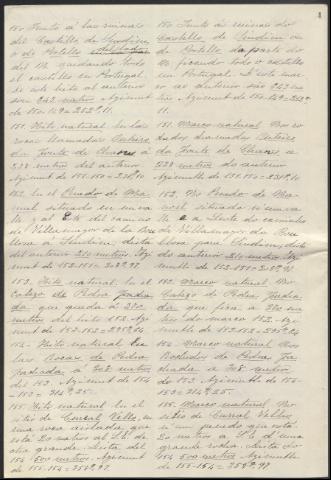 150 Frente á las ruinas
del Castillo de Sendin
ó de Portello
del N. quedando todo
el castillo en Portugal.
De este hito al anterior
son 243 metros Azimut
de 150-149 = 212º.11.
151. Hito natural en las
rocas llamadas Outeiro
da Fonte de Chaos á
528 metros del anterior
Azimut de 151-150 = 231º.10
152. En el Penedo de Ma-
nuel situado en un va-
lle y al E. del camino
de Villamayor de la Bou-
llosa á Sendin, dista
del anterior 210 metros Azi-
mut de 152-151 = 209º.98.
153. Hito natural en el
Cabezo de Pedra Fendida
que queda á 320
metros del hito 152. Azi-
mut de 153-152 = 295º.64
154. Hito natural en
las Bocas de Pedra
Fendida á 308 metros
del 153. Azimut de 154
-153 = 314º.25.
155. Hito natural en el
sitio de Curral Vello, en
una roca aislada que
está 20 metros al S.E. de
otra grande. Dista del
154 500 metros. Azimut
de 155-154 = 254º.97.
150 Frente á ruinas do
Castello de Sendim ou
de Portello da parte do
N. ficando todo o castello
em Portugal. D'este mar-
co ao anterior são 243 me-
tros Azimuth de 150-149 = 212º.
11.
151. Marco natural nos ro-
chedos chamados Outeiro
da Fonte de Chaos a
528 metros do anterior
Azimuth de 151-150 = 231º.10
152. No Penedo de Ma-
noel situado n'um val-
le e a Leste do caminho
de Villamayor da Bou-
llosa para Sendim, dista
do anterior 210 metros Azi-
muth de 152-151 = 209º.98
153. Marco natural no
Cabeço de Pedra Fendi-
da, que fica a 320 me-
tros do marco 152. Azi-
muth de 153-152 = 295º.64
154. Marco natural nos
Boccados de Pedra Fen-
dida a 308 metros
do 153. Azimuth de 154-
153 = 314º.25
155. Marco natural no
sitio de Curral Velho
n'um penedo que está
20 metros a S.E. d'uma
grande rocha. Dista do
154 500 metros. Azimuth
de 155-154 = 254º.97